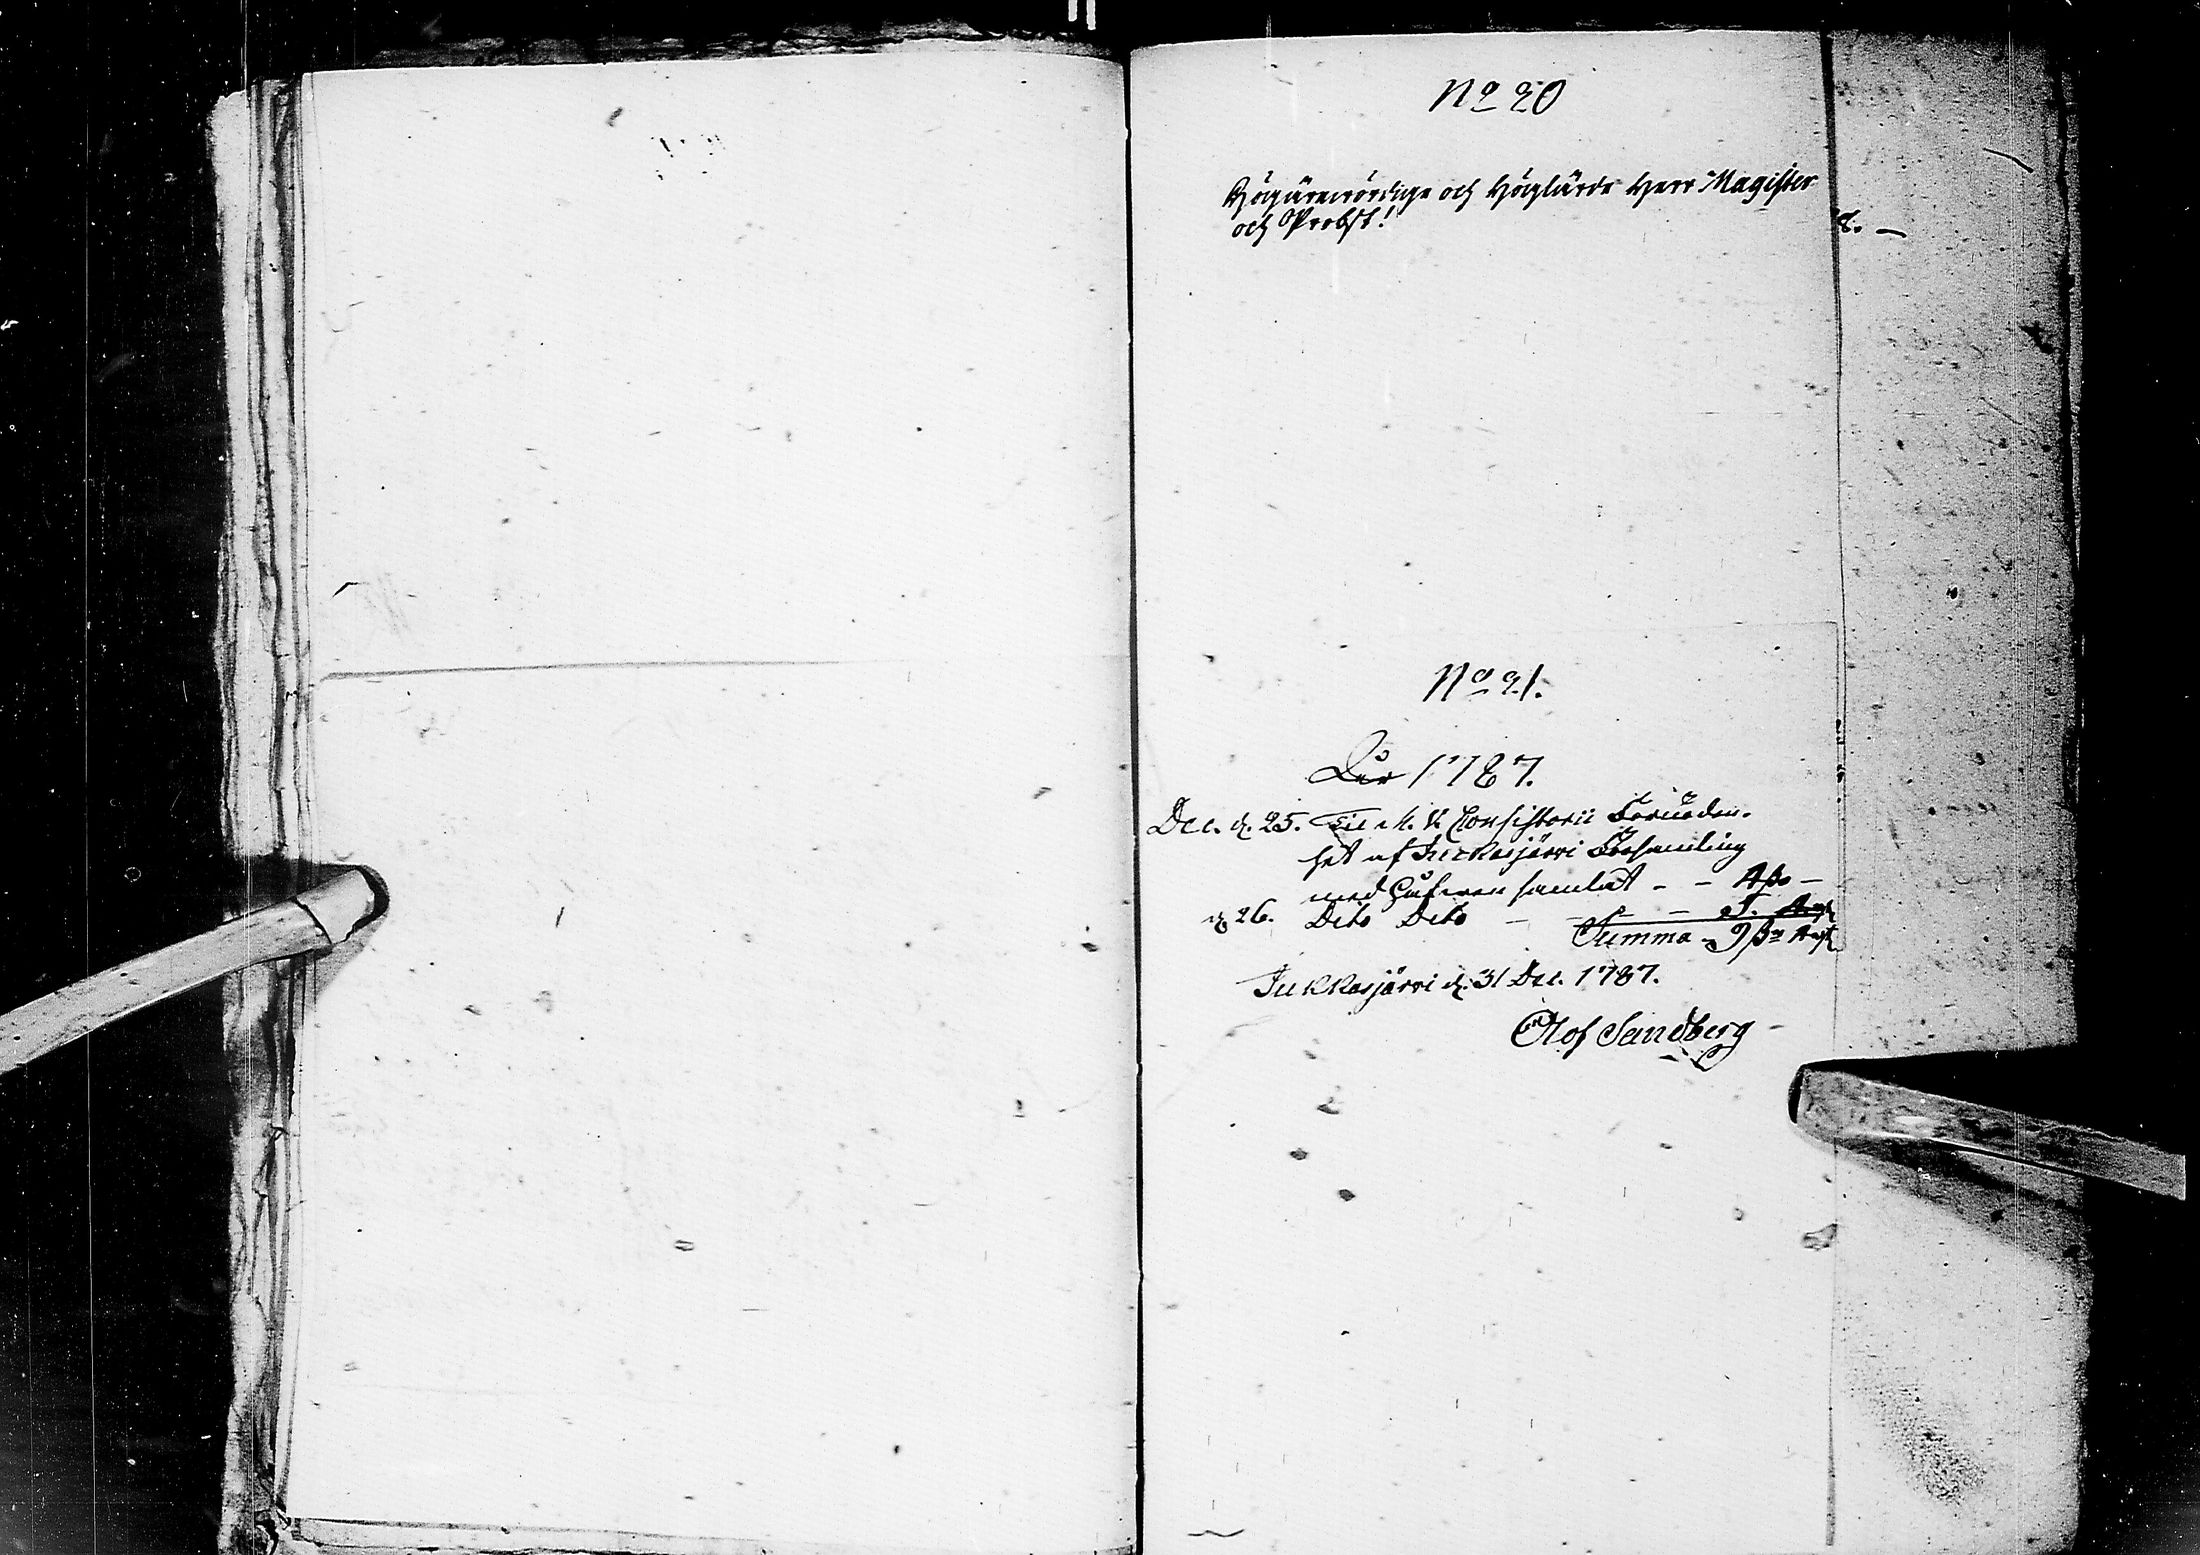 No 20
Högärewördige och Höglärde Herr Magister
och Probst!
8. —
No 21.
År 1787.
Dec. d. 25. Til M. V. Consistorii Förnöden-
het af Juckasjärwi Församling
med Håfwen samlat - - 4 ß -
d. 26. Dito Dito - - - - 5.
Summa - 9 ß
Jukkasjärvi d. 31 Dec. 1787.
Olof Sandberg